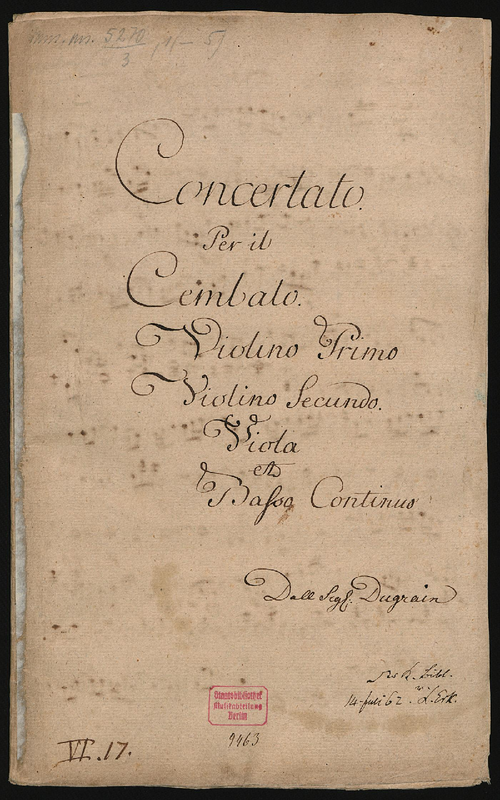 Mus. ms. 5270/3 (1-5)
Concertato.
Per il
Cembalo.
Violino Primo
Violino Secundo.
Viola
et
Basso Continuo
Dall Sigl. Dugrain
K. Bibl.
14. Juli 62. v. L. Erk.
Staatsbibliothek
Musikabteilung
Berlin
9463
VI.17.